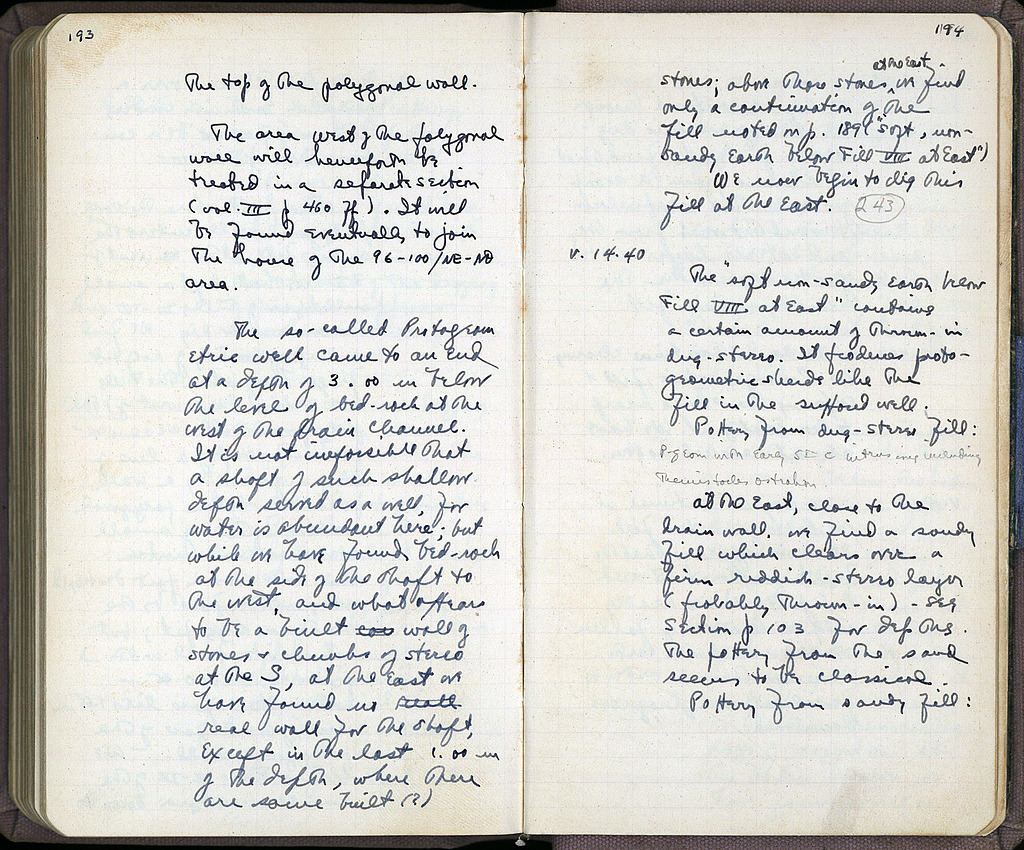 193
The top of the polygonal wall.
The area west of the polygonal
wall will henceforth be
treated in a separate section
(vol. III p 460 ff). It will
be found eventually to join
the house of the 96-100/ΝΕ-ΝΘ
area.
The so-called Protogeom
etric well came to an end
at a depth of 3.00 m below
the level of bed-rock at the
west of the drain channel.
It is not impossible that
a shaft of such shallow
depth served as a well, for
water is abundant here; but
while we have found bed-rock
at the side of the shaft to
the west, and what appears
to be a built wall of
stones + chunks of stereo
at the S, at the East we
have found no wall
real wall for the shaft,
except in the last 1.00 m
of the depth, where there
are some built (?)
194
at the East
stones; above those stones, we find
only a continuation of the
fill noted on p. 189 ("soft, non-
sandy Earth below Fill VIII at East")
We now begin to dig this
fill at the East. 243
V. 14.40
The "soft non-sandy Earth below
Fill VIII at East" contains
a certain amount of thrown-in
dug-stereo. It produces proto-
geometric sherds like the
fill in the supposed well.
Pottery from dug-stereo fill:
P-geom with early 5th c intrusions including
Themistocles ostrakon.
at the East, close to the
drain wall, we find a sandy
fill which clears over a
firm reddish-stereo layer
(probably thrown-in) - see
Section p 103 for depths.
The pottery from the sand
seems to be classical.
Pottery from sandy fill: